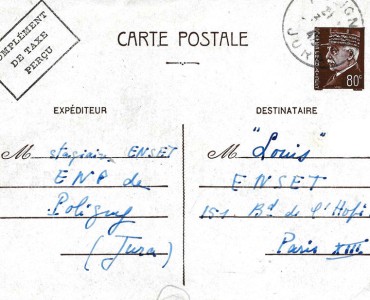 COMPLÉMENT
DE TAXE
PERÇU
CARTE POSTALE
POSTES FRANÇAISES
80c
JURA
EXPÉDITEUR
M stagiaire ENSET
ENP de
Poligny
(Jura)
DESTINATAIRE
M "Louis"
ENSET
151 Bd de l'Hôpi
Paris XIII